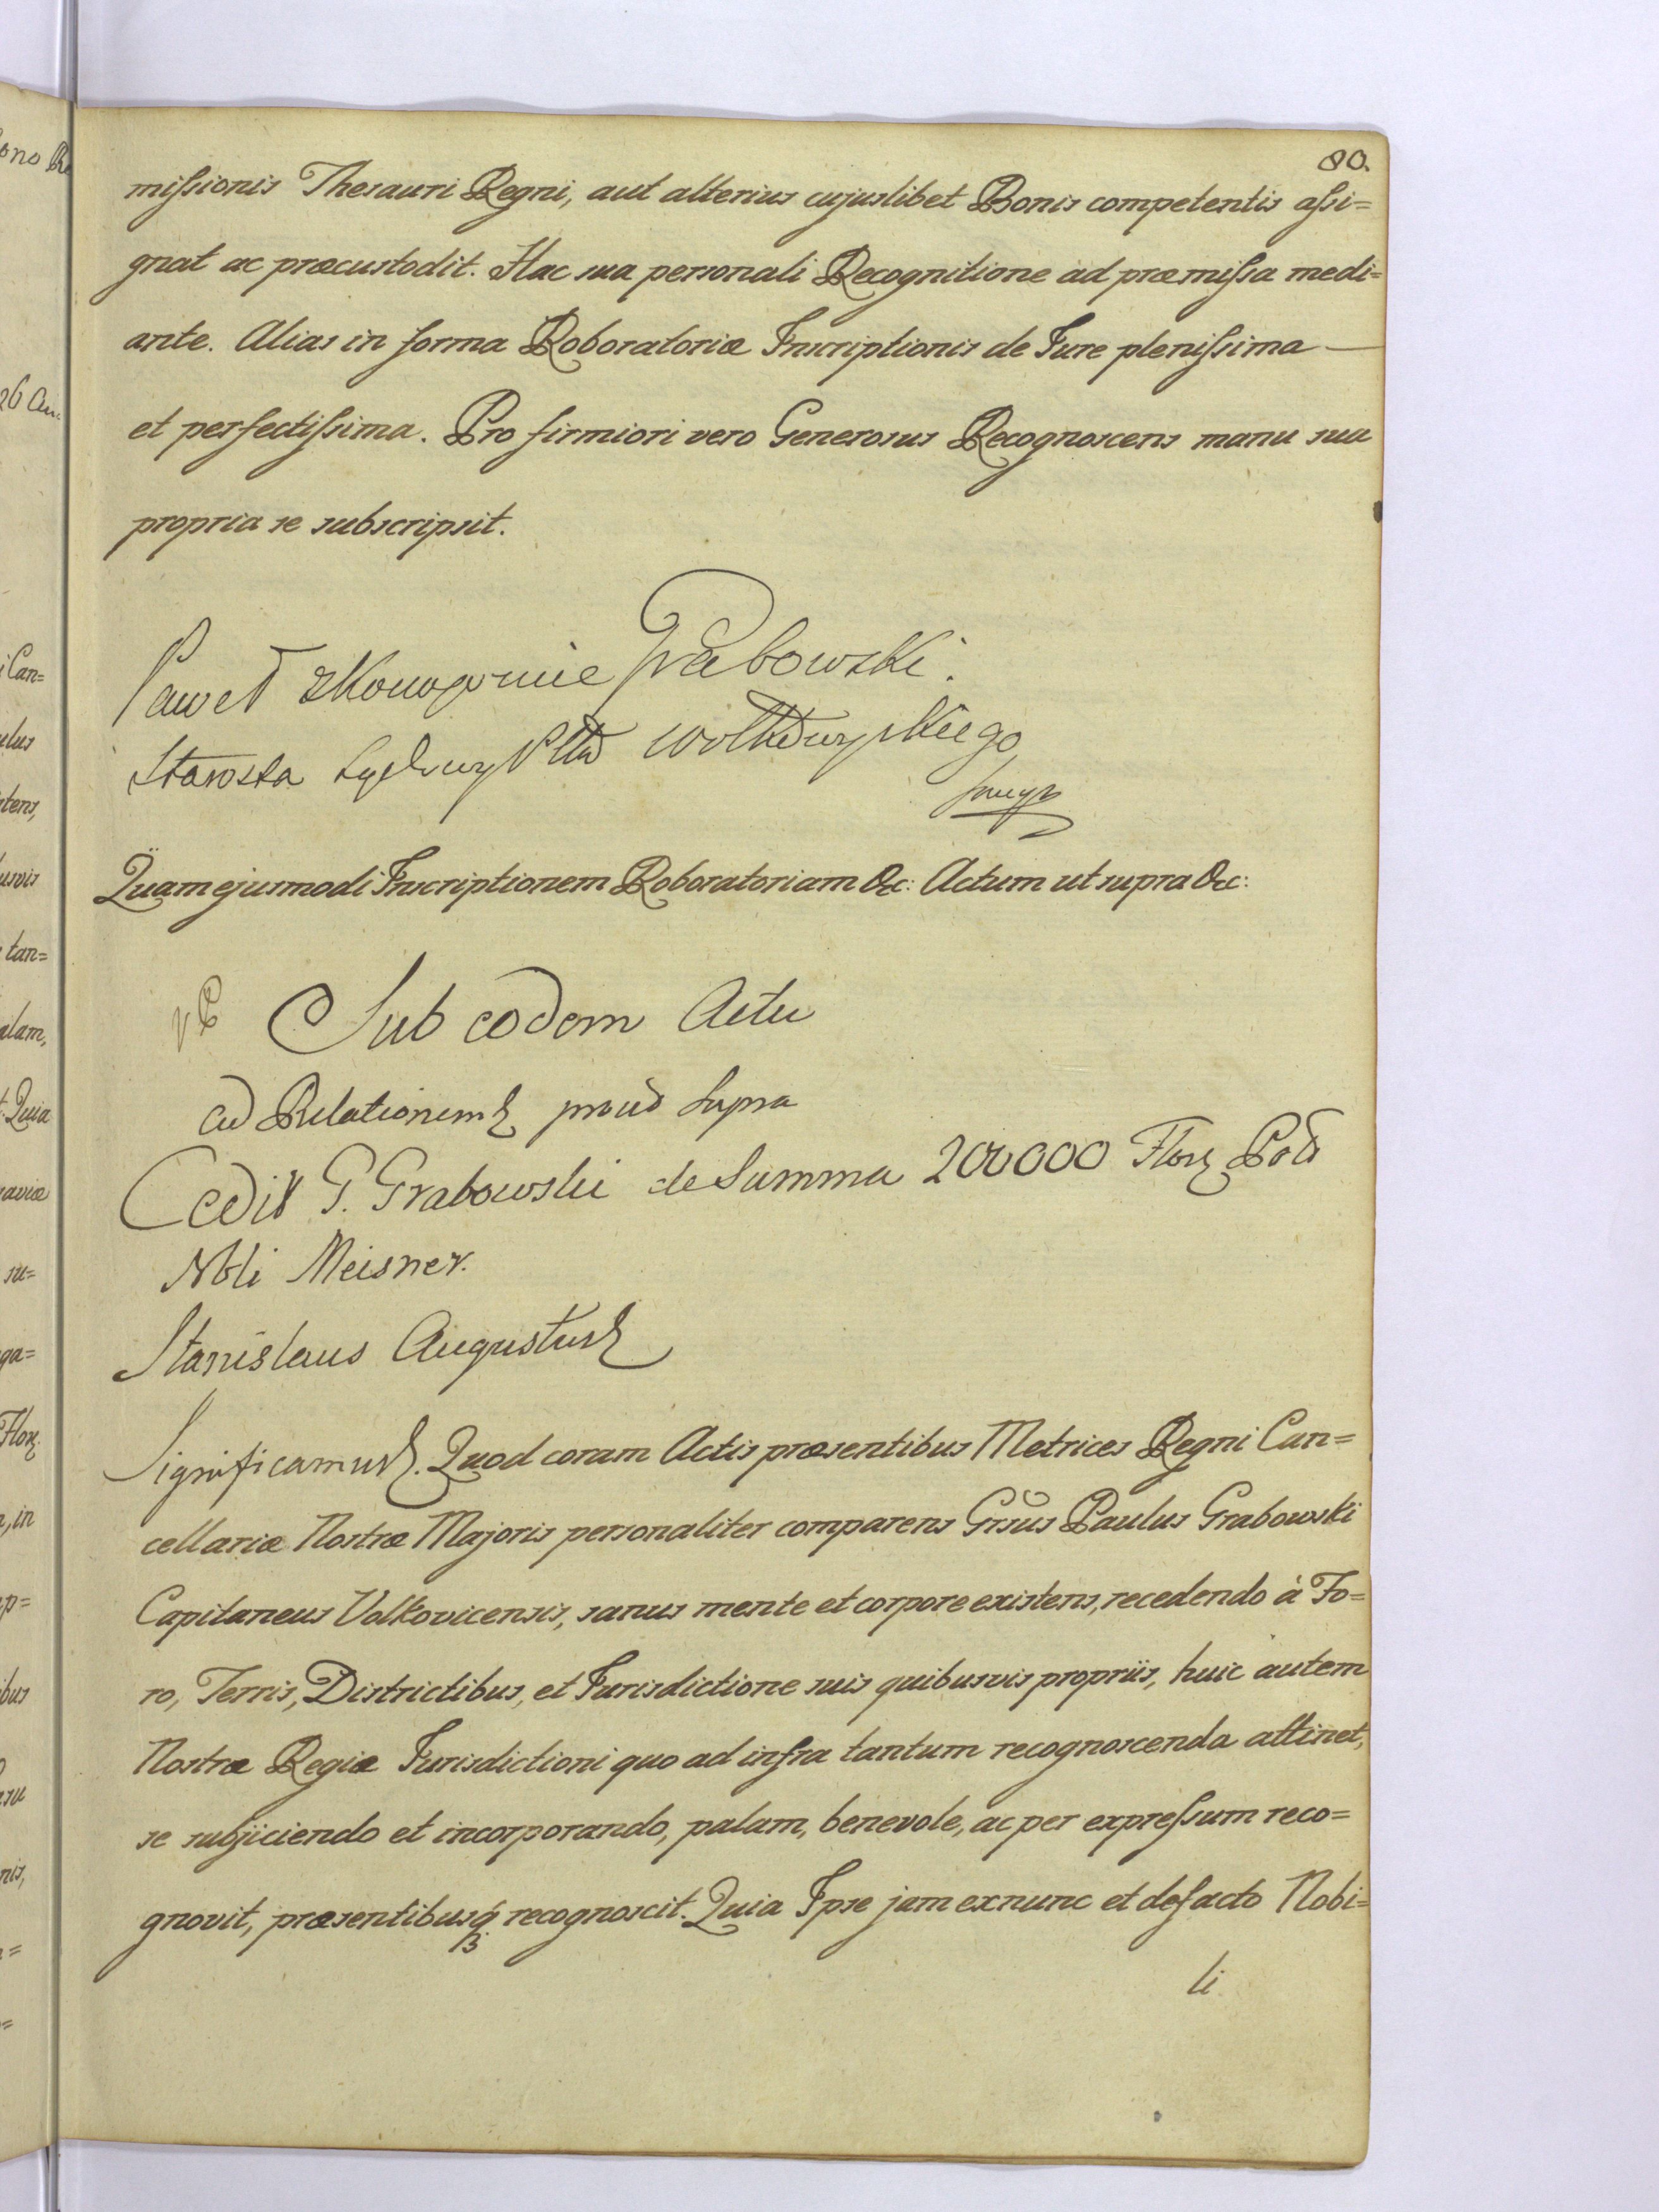 80.
mißionis Thesauri Regni, aut alterius cujuslibet Bonis competentis aßi=
gnat ac præcustodit. Hac sua personali Recognitione ad præmißa medi=
ante. Alias in forma Roboratoriæ Inscriptionis de Jure plenißima —
et perfectißima. Pro firmiori vero Generosus Recognoscens manu sua
propria se subscripsit.
Paweł Grabowski.
Starosta Wołkowyskiego
Quam ejusmodi Inscriptionem Roboratoriam &c: Actum ut supra &c:
Sub eodem Actu
ad Relationem prout supra
Cedit G. Grabowski de Summa 200000 Flor Pol
Nbli Meisner.
Stanislaus Augustus
Significamus. Quod coram Actis præsentibus Metrices Regni Can=
cellariæ Nostræ Majoris personaliter comparens Grsus Paulus Grabowski
Capitaneus Volkovicensis, sanus mente et corpore existens, recedendo à Fo=
ro, Terris, Districtibus, et Jurisdictione suis quibusvis propriis, huic autem
Nostræ Regiæ Jurisdictioni quo ad infra tantum recognoscenda attinet,
se subjiciendo et incorporando, palam, benevole, ac per expreßum reco=
gnovit, præsentibusq recognoscit. Quia Ipse jam exnunc et defacto Nobi=
li